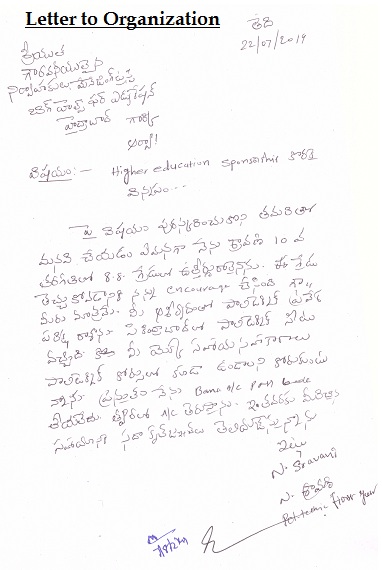 Letter to Organization
తేది
22/07/2014
శ్రీయుత
గౌరవనీయులైన
హైద్రాబాద్ గారికి
విషయం:- Higher education sponsorship కొరకై
విన్నపం...
పై విషయం పురస్కరించుకొని తమరితో
మనవి చేయడం ఏమనగా నేను శ్రావణి 10 వ
తరగతిలో 8.8 గ్రేడులో ఉత్తీర్ణురాలైనాను. ఈ గ్రేడు
నన్ను encourage చేసింది గా,,
మీరు మాత్రమే. మీ పాలిటెక్నిక్ ప్రవేశ
పరీక్ష సికింద్రాబాద్‌లో పాలిటెక్నిక్ సీటు
వచ్చింది మీ యొక్క సహాయసహకారాలు
పాలిటెక్నిక్ కోర్సులో కూడా ఉండాలని కోరుకుంటు
న్నాను ప్రస్తుతం నేను Bank a/c
తీయలేదు. త్వరలో a/c తెరుస్తాను. ఇంతవరకు మీరిచ్చిన
సహాయానికి సదా కృతజ్ఞతలు తెలియజేస్తున్నాను
ఇట్లు
N. Sravani
N. శ్రావణి
Politecnic First year